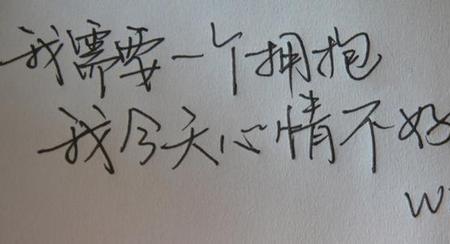 我需要一个拥抱
我今天心情不好
W